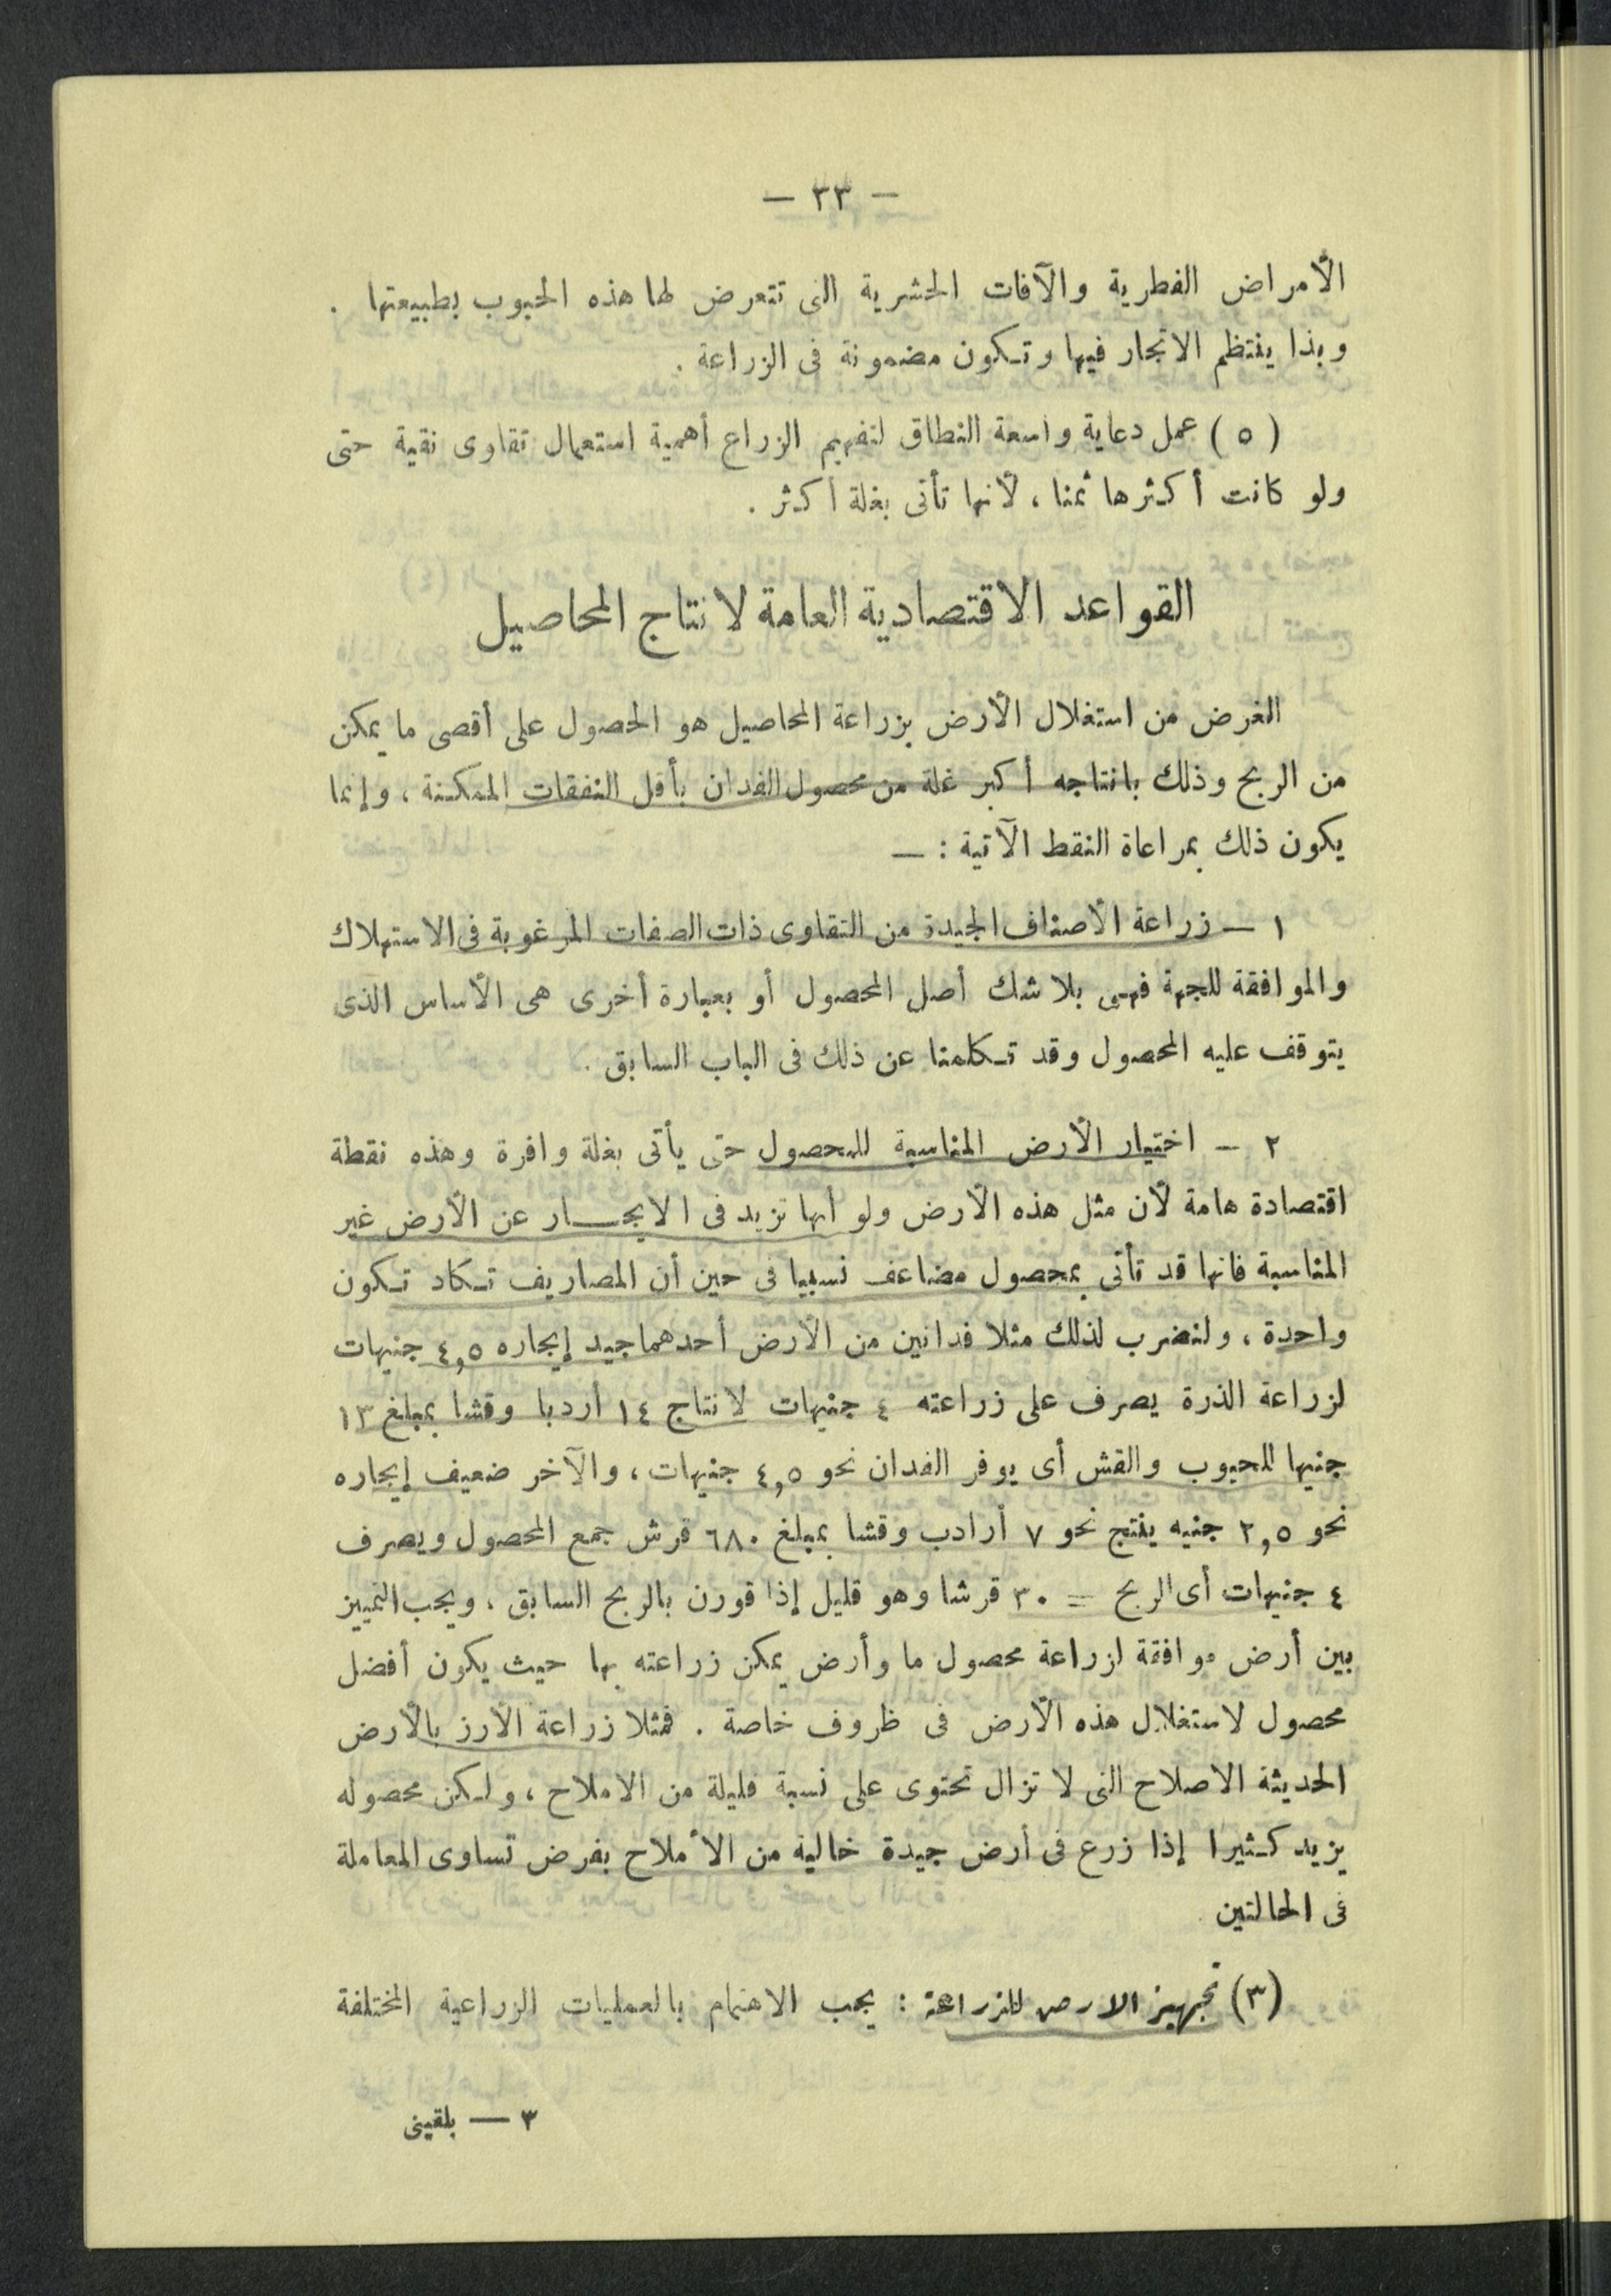 — ٣٣ —
الأمراض الفطرية والآفات الحشرية التى تتعرض لها هذه الحبوب بطبيعتها .
وبذا ينتظم الاتجار فيها وتكون مضمونة فى الزراعة .
( ٥ ) عمل دعاية واسعة النطاق لتفهيم الزراع أهمية استعمال تقاوى نقية حتى
ولو كانت أكثرها ثمنا ، لأنها تأتى بغلة أكثر .
القواعد الاقتصادية العامة لانتاج المحاصيل
الغرض من استغلال الأرض بزراعة المحاصيل هو الحصول على أقصى ما يمكن
من الربح وذلك بانتاجه أكبر غلة من محصول الفدان بأقل النفقات الممكنة ، وإنما
يكون ذلك بمراعاة النقط الآتية : —
١ — زراعة الأصناف الجيدة من التقاوى ذات الصفات المرغوبة فى الاستهلاك
والموافقة للجهة فهى بلا شك أصل المحصول أو بعبارة أخرى هى الأساس الذى
يتوقف عليه المحصول وقد تكلمنا عن ذلك فى الباب السابق .
٢ — اختيار الأرض المناسبة للمحصول حتى يأتى بغلة وافرة وهذه نقطة
اقتصادة هامة لأن مثل هذه الأرض ولو أنها تزيد فى الايجار عن الأرض غير
المناسبة فانها قد تأتى بمحصول مضاعف نسبيا فى حين أن المصاريف تكاد تكون
واحدة ، ولنضرب لذلك مثلا فدانين من الأرض أحدهما جيد إيجاره ٤,٥ جنيهات
لزراعة الذرة يصرف على زراعته ٤ جنيهات لانتاج ١٤ أردبا وقشا بمبلغ ١٣
جنيها للحبوب والقش أى يوفر الفدان نحو ٤,٥ جنيهات ، والآخر ضعيف إيجاره
نحو ٢,٥ جنيه ينتج نحو ٧ أرادب وقشا بمبلغ ٦٨٠ قرش جمع المحصول ويصرف
٤ جنيهات أى الربح = ٣٠ قرشا وهو قليل إذا قورن بالربح السابق ، ويجب التمييز
بين أرض موافقة لزراعة محصول ما وأرض يمكن زراعته بها حيث يكون أفضل
محصول لاستغلال هذه الأرض فى ظروف خاصة . فمثلا زراعة الأرز بالأرض
الحديثة الاصلاح التى لا تزال تحتوى على نسبة قليلة من الاملاح ، ولكن محصوله
يزيد كثيرا إذا زرع فى أرض جيدة خالية من الأملاح بفرض تساوى المعاملة
فى الحالتين
(٣) تجهيز الارض للزراعة : يجب الاهتمام بالعمليات الزراعية المختلفة
٣ — بلقينى